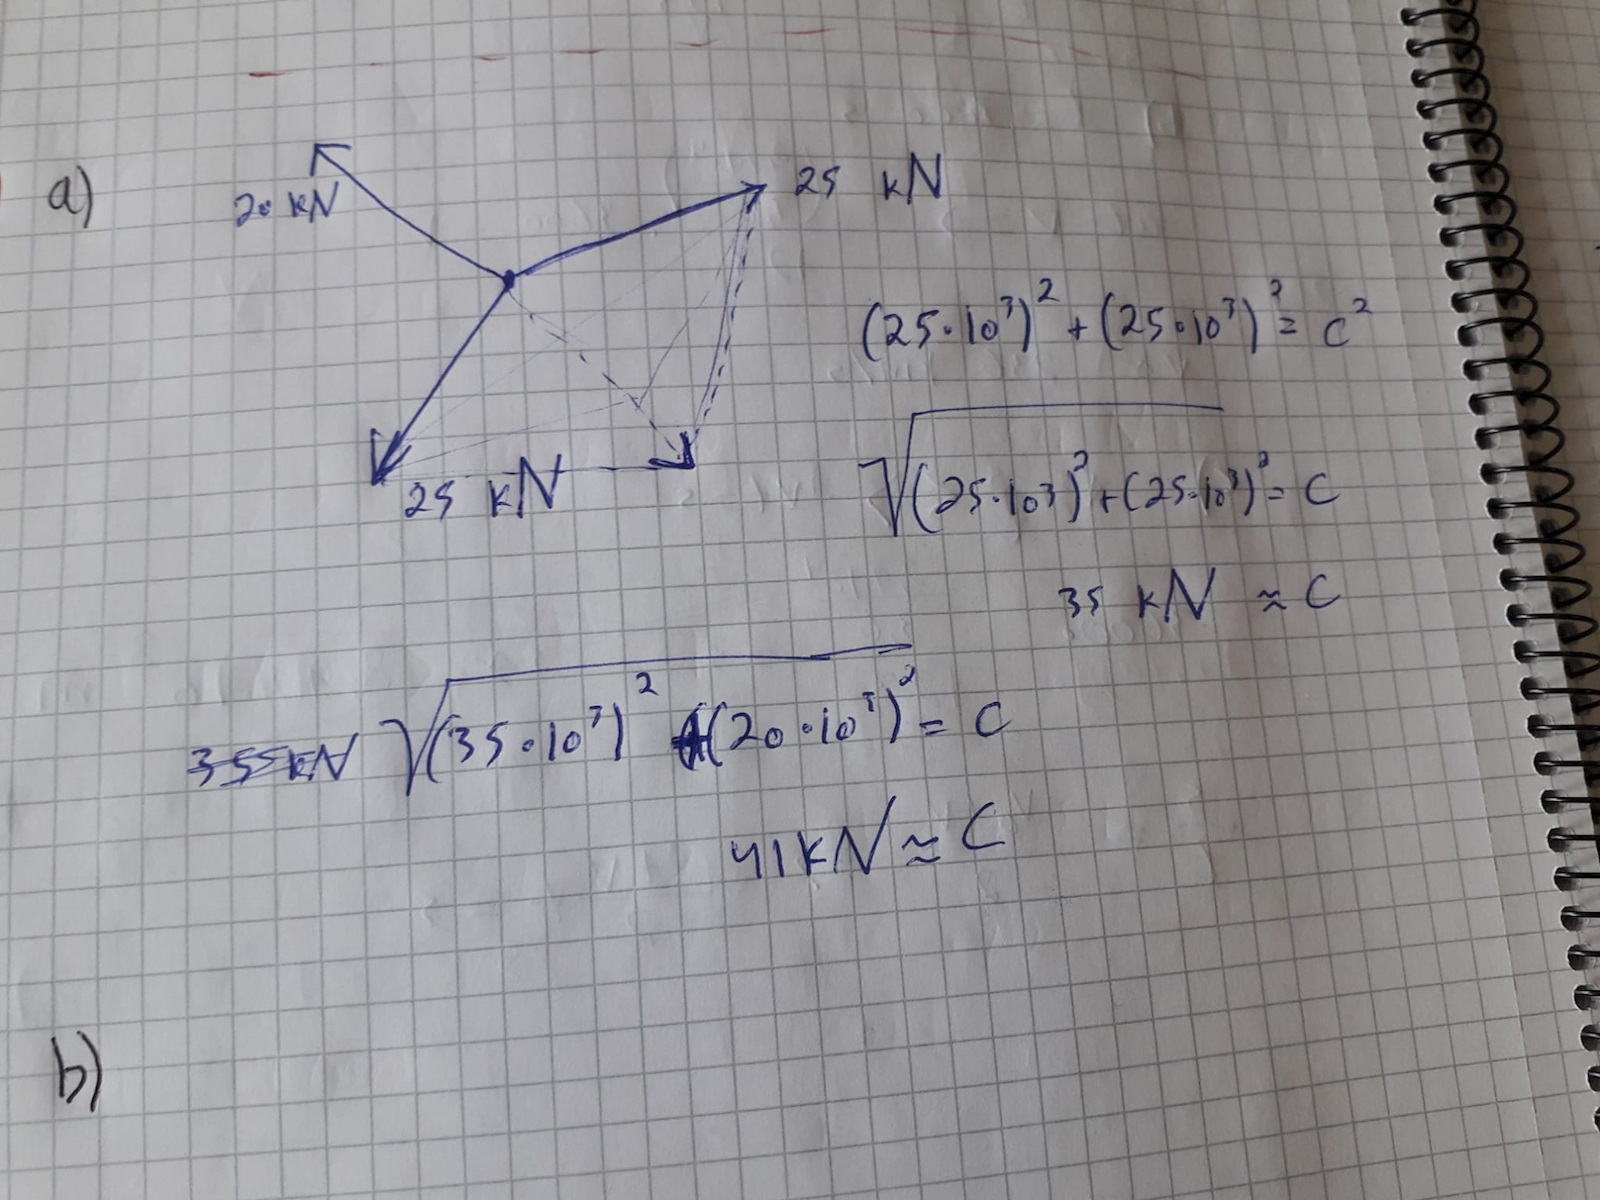 a)
20 kN
25 kN
25 kN
(25·10³)² + (25·10³)² = c²
√(25·10³)² + (25·10³)² = C
35 kN ≈ C
355kN √(35·10³)² + (20·10³)² = C
41kN ≈ C
b)